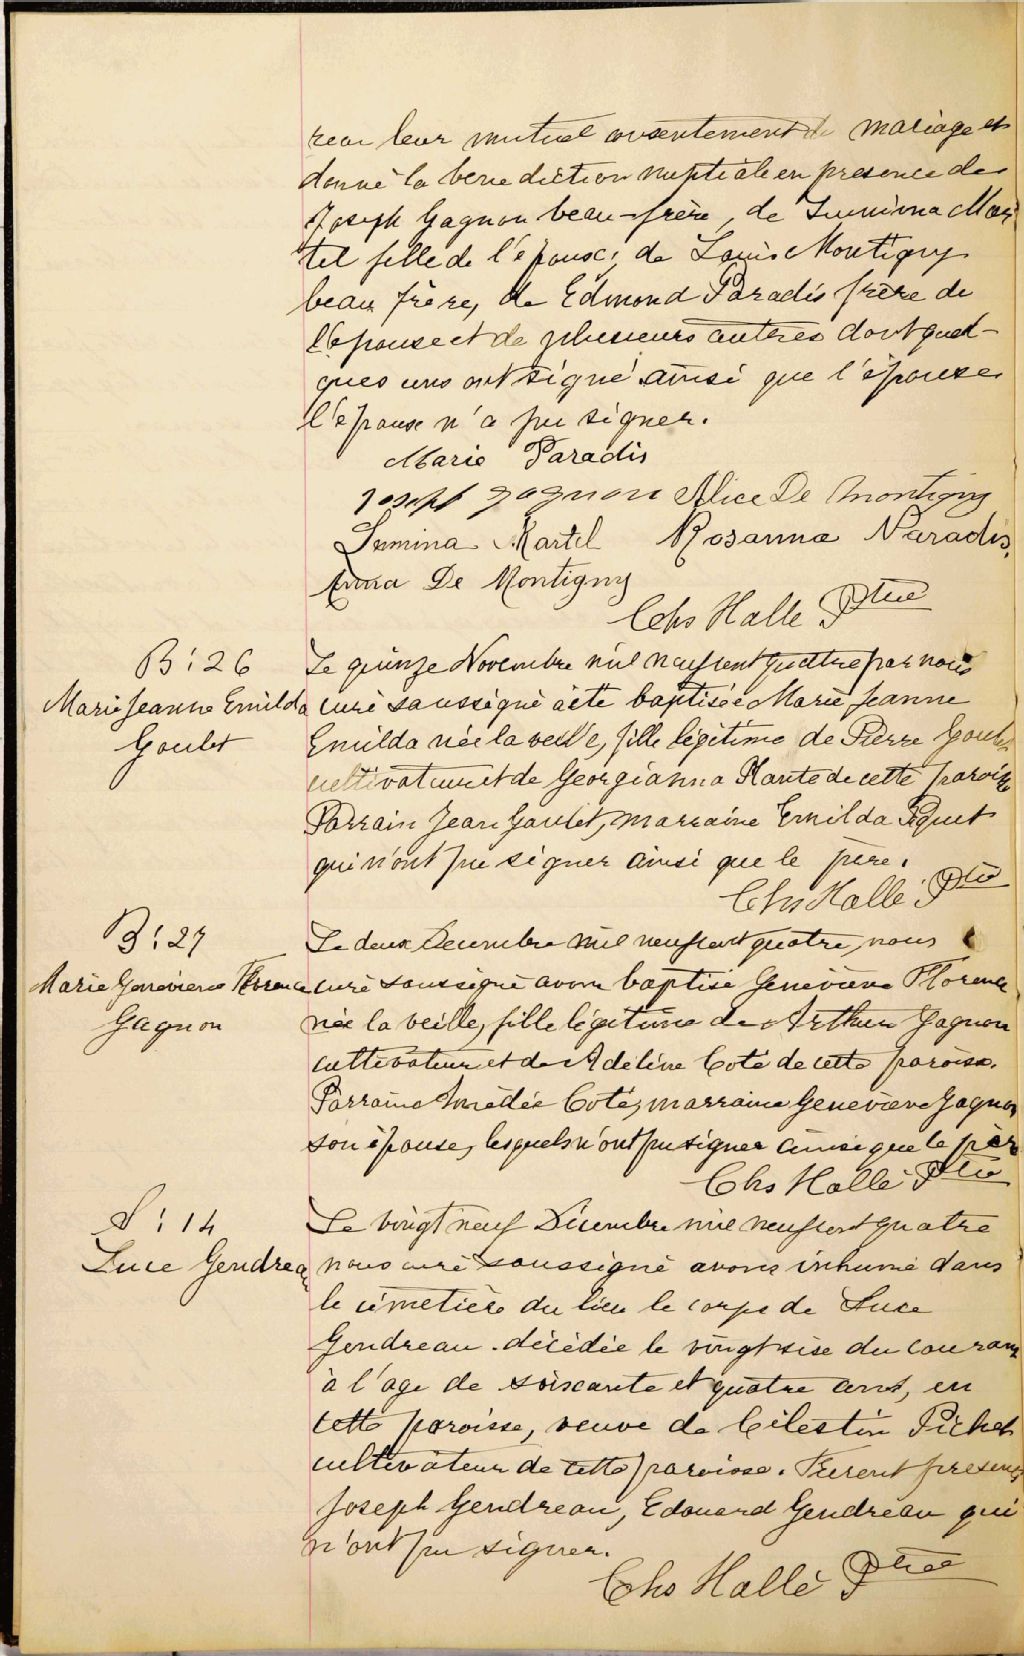 reçu leur mutuel consentement de mariage et
donné la benediction nuptiale en presence de
Joseph Gagnon beau-frère, de Lumina Mar
tel fille de l'épouse, de Louis Montigny
beau frère, de Edmond Paradis frère de
l'épouse et de plusieurs autres dont quel-
ques uns ont signé ainsi que l'épouse
l'époux n'a pu signer.
Marie Paradis
Joseph Gagnon Alice De Montigny
Lumina Martel Rosanna Paradis.
Anna De Montigny
Chs Hallé Ptre
B: 26
Marie Jeanne Emilda
Goulet
Le quinze Novembre mil neuf cent quatre par nous
curé soussigné a été baptisée Marie Jeanne
Emilda née la veille, fille légitime de Pierre Goulet
cultivateur et de Georgianna Plante de cette paroisse
Parrain Jean Goulet, marraine Emilda Paquet
qui n'ont pu signer ainsi que le père.
Chs Hallé Ptre
B: 27
Marie Genevieve Florence
Gagnon
Le deux Decembre mil neuf cent quatre, nous
curé soussigné avons baptisé Geneviève Florence
née la veille, fille légitime de Arthur Gagnon
cultivateur et de Adéline Coté de cette paroisse.
Parrain Amédée Coté, marraine Geneviève Gagnon
son épouse, lesquels n'ont pu signer ainsi que le père
Chs Hallé Ptre
S: 14
Luce Gendreau
Le vingt neuf Décembre mil neuf cent quatre
nous curé soussigné avons inhumé dans
le cimetière du lieu le corps de Luce
Gendreau décédée le vingt sixe du courant
à l'age de soixante et quatre ans, en
cette paroisse, veuve de Célestin Pichet
cultivateur de cette paroisse. Furent presents
Joseph Gendreau, Edouard Gendreau qui
n'ont pu signer.
Chs Hallé Ptre